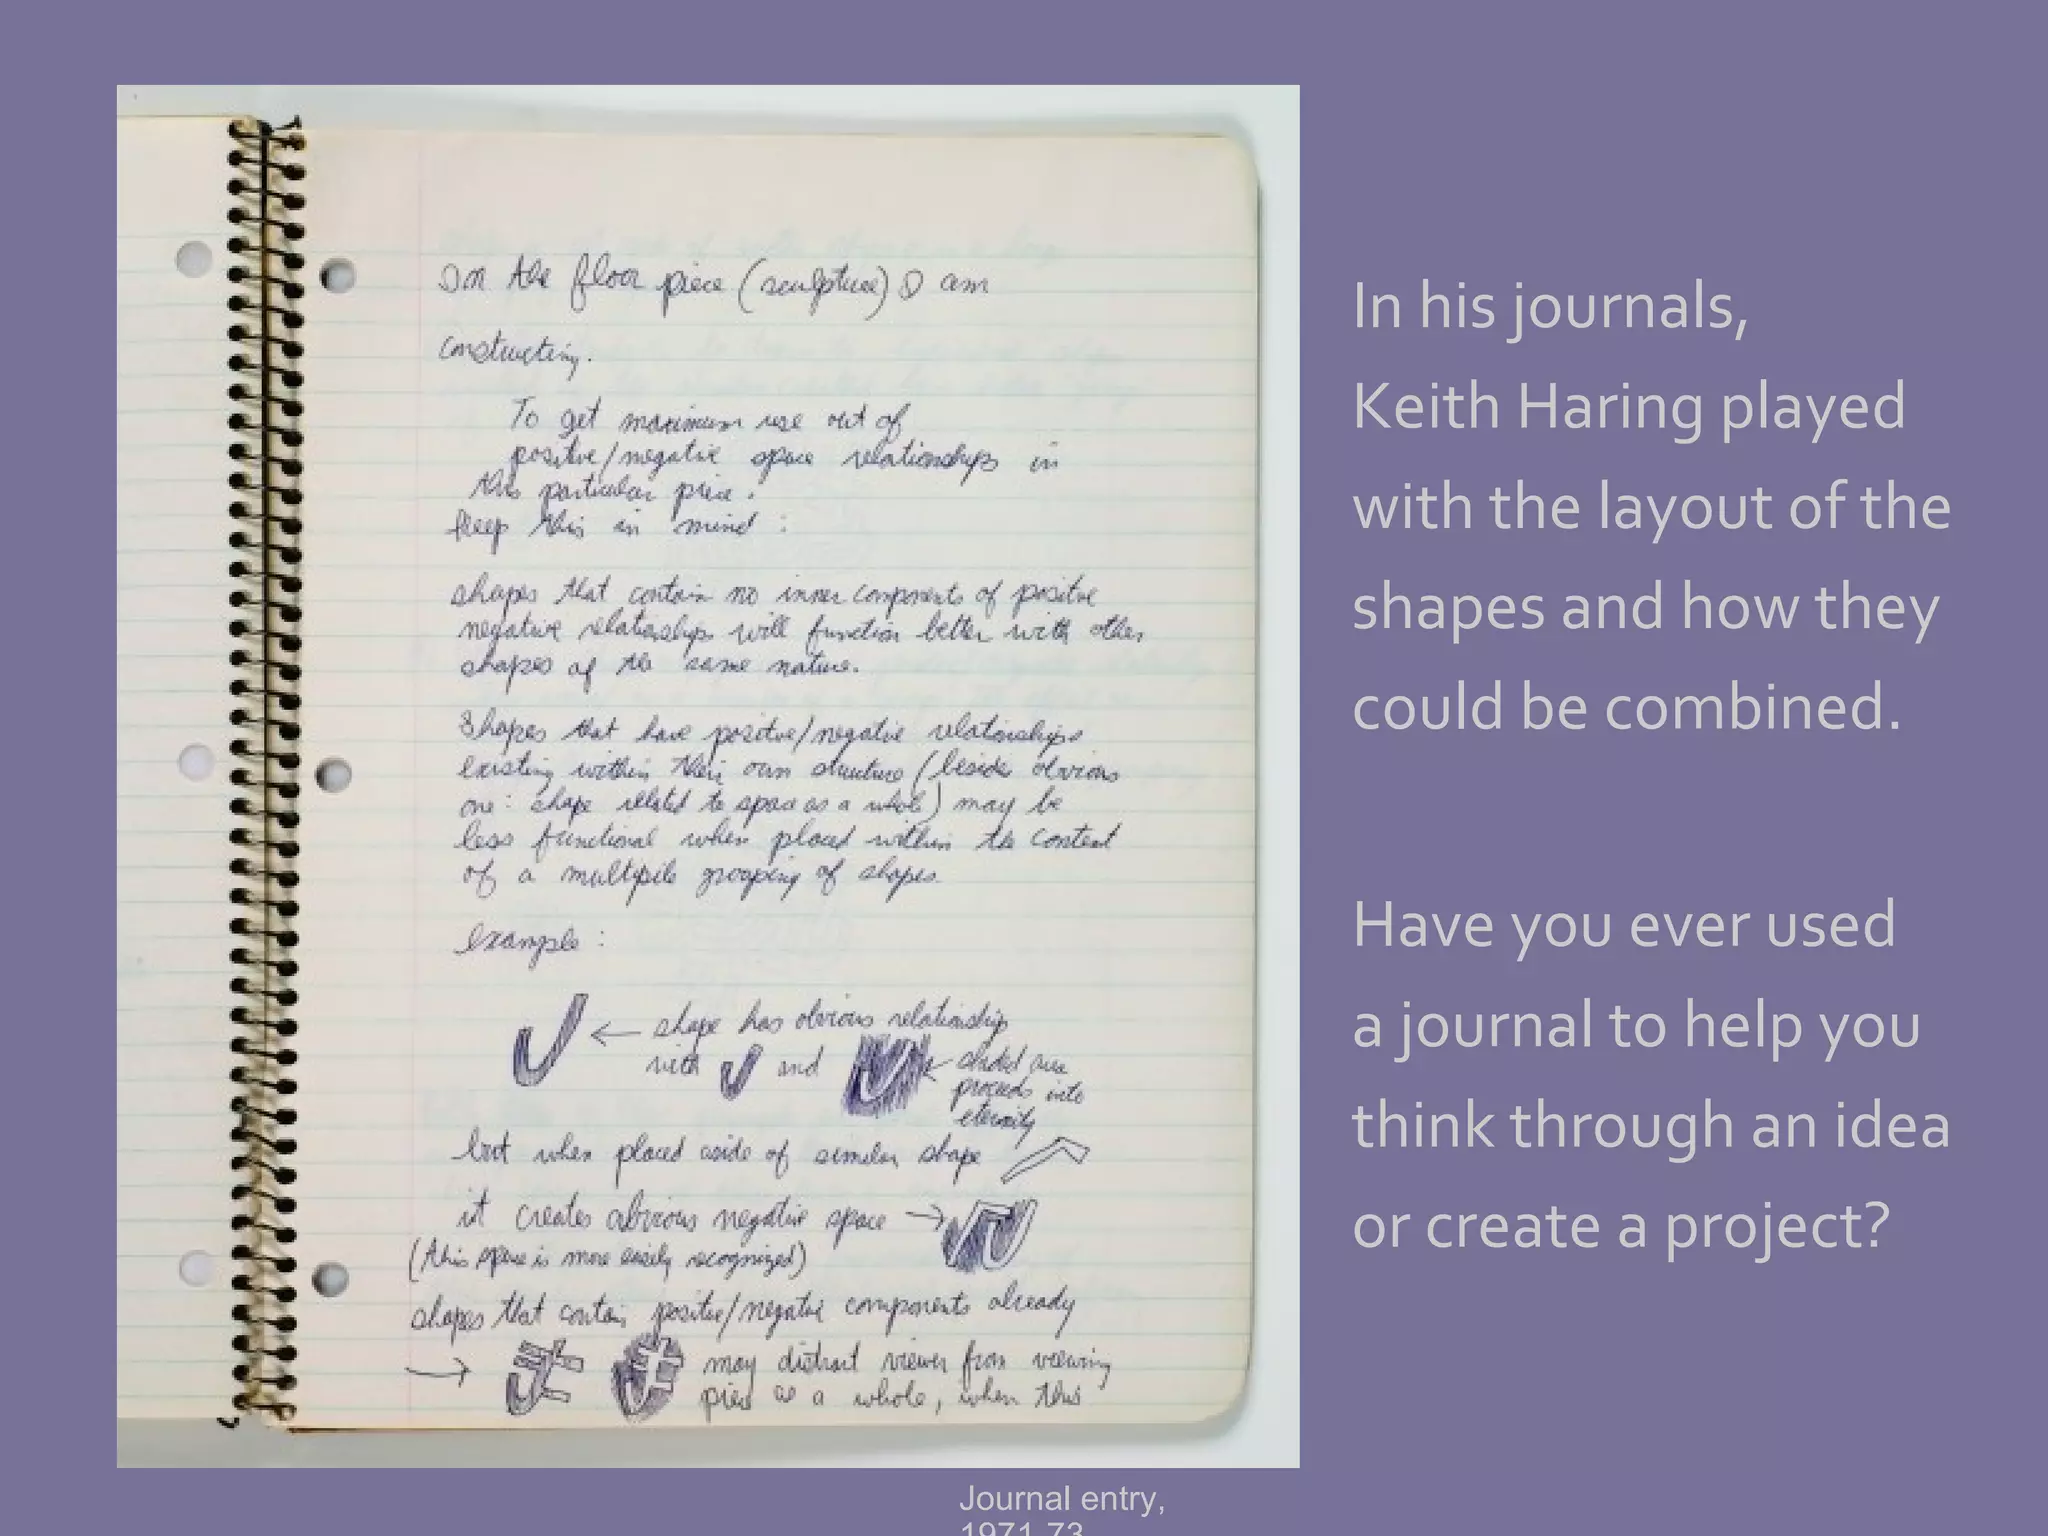 In the floor piece (sculpture) I am
constructing.
To get maximum use out of
positive/negative space relationships in
this particular piece.
Keep this in mind :
shapes that contain no inner components of positive
negative relationships will function better with other
shapes of the same nature.
Shapes that have positive/negative relationships
existing within their own structure (beside obvious
one: shape related to space as a whole) may be
less functional when placed within the context
of a multiple grouping of shapes.
example :
shape has obvious relationship
with and
shaded area
proceeds into
eternity
but when placed aside of similar shape
it creates obvious negative space
(this space is more easily recognized)
shapes that contain positive/negative components already
may distract viewer from viewing
piece as a whole, when this
In his journals,
Keith Haring played
with the layout of the
shapes and how they
could be combined.
Have you ever used
a journal to help you
think through an idea
or create a project?
Journal entry,
1971-73